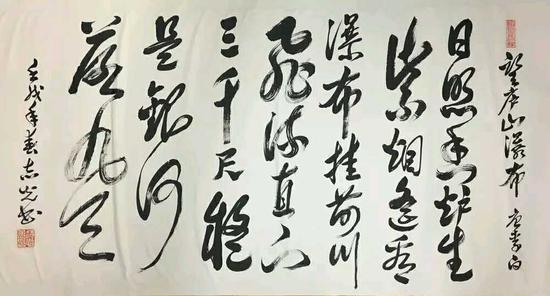 望庐山瀑布 唐李白
日照香炉生
紫烟遥看
瀑布挂前川
飞流直下
三千尺疑
是银河
落九天
壬戌年春志光书